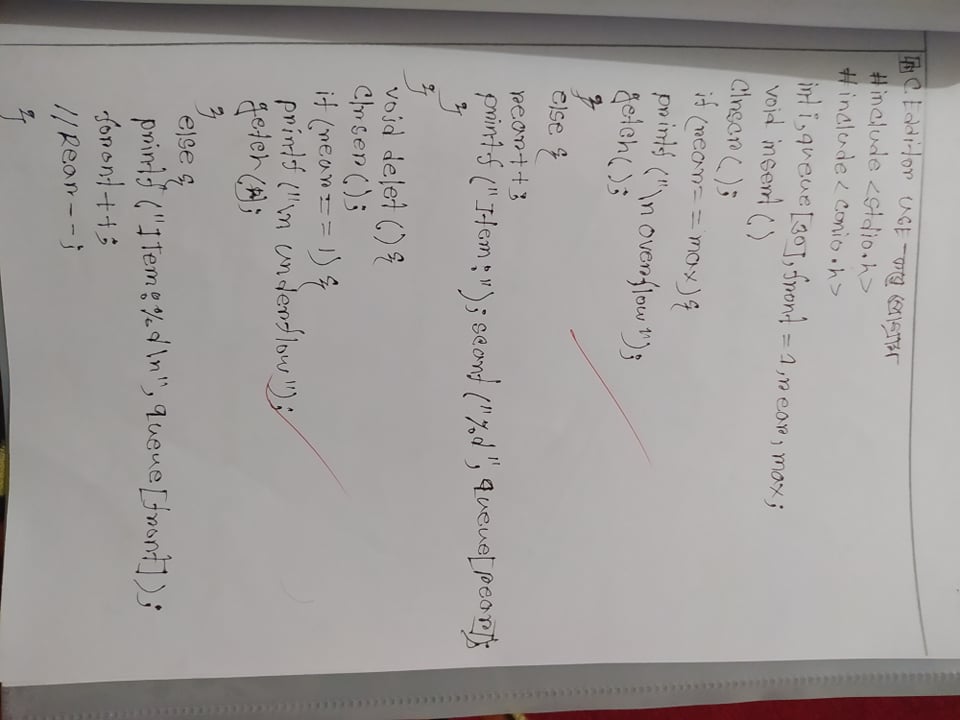 C Edditor use করে প্রোগ্রাম
#include <stdio.h>
#include <conio.h>
int i, queue[30], front = 1, rear, max;
void insert()
Clrscr();
if (rear == max) {
printf ("\n overflow");
getch();
}
else {
rear++;
printf ("Item:"); scanf ("%d", queue[rear]);
}
}
void delet() {
Clrscr();
if (rear == 1) {
printf ("\n underflow");
getch();
}
else {
printf ("Item:%d\n", queue[front]);
foront ++;
//Rear--;
}